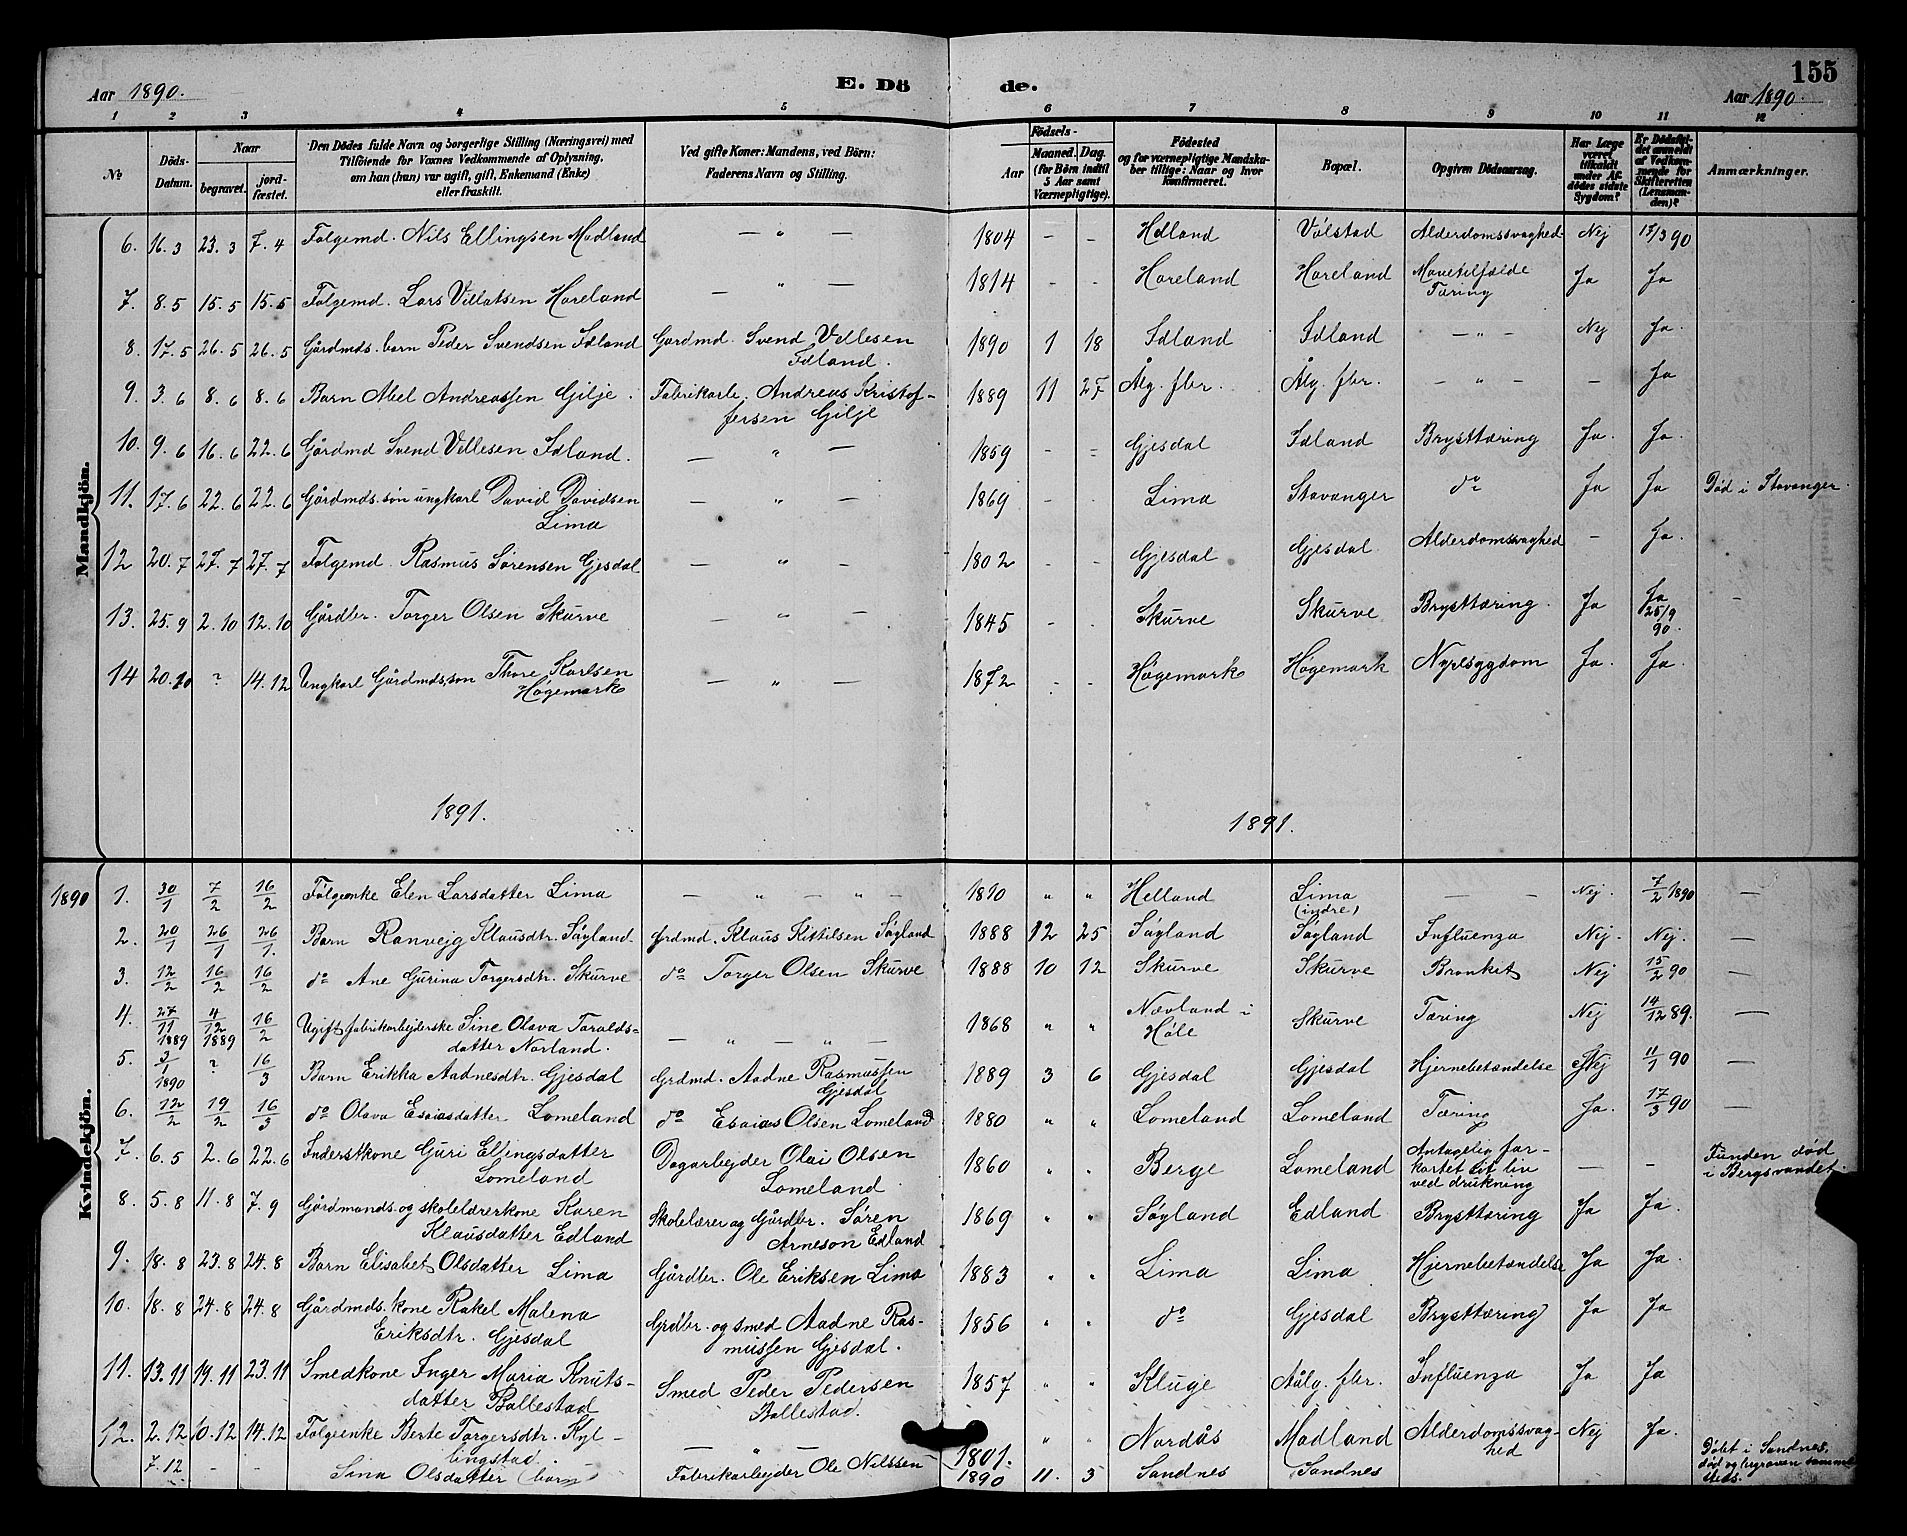 155
Aar 1890. E. Dö de. Aar 1890.
1 2 3 4 5 6 7 8 9 10 11 12
№ Döds-Datum. Naar begravet. jord-fæstet. Den Dödes fulde Navn og borgerlige Stilling (Næringsvei) med Tilföiende for Voxnes Vedkommende af Oplysning, om han (hun) var ugift, gift, Enkemand (Enke) eller fraskilt. Ved gifte Koner: Mandens, ved Börn: Faderens Navn og Stilling. Födsels-Aar Maaned. Dag. (for Börn indtil 5 Aar samt Værnepligtige). Födested og for værnepligtige Mandska-ber tillige: Naar og hvor konfirmeret. Bopæl. Opgiven Dödsaarsag. Har Læge været tilkaldt under Af-dödes sidste Sygdom? Er Dödsfal-det anmeldt af Vedkom-mende for Skifteretten (Lensman-den)? Anmærkninger.
Mandkjön.
6. 16.3 23.3 7.4 Følgemd. Nils Ellingsen Madland — " — 1804 - - Helland Vølstad Alderdomssvaghed Nej 17/3 90
7. 8.5 15.5 15.5 Følgemd. Lars Villatsen Høreland — " — 1814 - - Høreland Høreland Mavetilfælde Tæring Ja Ja
8. 17.5 26.5 26.5 Gårdmds. barn Peder Svendsen Idland Gardmd. Svend Villesen Idland. 1890 1 18 Idland Idland — " — Nej Ja.
9. 3.6 8.6 8.6 Barn Abel Andreassen Gilje. Fabrikarb. Andreas Kristof-fersen Gilje 1889 11 27 Ålg. fbr. Ålg. fbr. — " — - Ja
10. 9.6 16.6 22.6 Gårdmd Svend Villesen Idland. — " — 1859 - = Gjesdal Idland Brysttæring Ja. Ja.
11. 17.6 22.6 22.6 Gårdmds. søn ungkarl David Davidsen Lima — " — 1869 - - Lima Stavanger do Ja Ja Død i Stavanger.
12 20.7 27.7 27.7 Følgemd. Rasmus Sørensen Gjesdal — " — 1802 - - Gjesdal Gjesdal Alderdomssvaghed - Ja.
13. 25.9 2.10 12.10 Gårdbr. Torger Olsen Skurve — " — 1845 - - Skurve Skurve Brysttæring. Ja Ja 25/9 90. -
14 20.10 ? 14.12 Ungkarl Gårdmds. søn Thore Karlsen Høgemark — " — 1872 - - Høgemark Høgemark Nyresygdom Ja. Ja.
1891. 1891.
Kvindekjön.
1890 1. 30/1 7/2 16/2 Følgeenke Elen Larsdatter Lima — " — " — 1810 " " Helland Lima (indre) — — Nej. 7/2 1890 —
2. 20/1 26/1 26/1. Barn Ranveig Klausdtr. Søyland. Grdmd. Klaus Kittilsen Søyland 1888 12 25 Søyland Søyland Influenza Nej. Nej. —
3. 12/2 16/2 16/2 do Ane Gurina Torgersdtr. Skurve do Torger Olsen Skurve 1888 10 12 Skurve Skurve Bronkit Nej 15/2 90 —
4. 27/11 1889 4/12 1889 16/2 Ugift fabrikarbejderske Sine Olava Taralds-datter Norland. — " — " — 1868 " " Nævland i Høle Skurve Tæring Nej 14/12 89. —
5. 3/1 1890 ? 16/3 Barn Erikka Aadnesdtr. Gjesdal Grdmd. Aadne Rasmussen Gjesdal 1889 3 6 Gjesdal Gjesdal Hjernebetændelse Nej 11/1 90 —
6. 12/2 19/2 16/3 do Olava Esaiasdatter Lomeland do Esaias Olsen Lomeland 1880 " " Lomeland Lomeland Tæring Ja. 17/3 90 —
7. 6.5 2.6 22.6 Inderstkone Guri Ellingsdatter Lomeland Dagarbejder Olai Olsen Lomeland 1860 " " Berge Lomeland Antagelig for-kortet sit liv ved drukning — — Funden død i Bergsvandet.
8. 5.8 11.8 7.9 Gårdmands. og skolelærerkone Karen Klausdatter Edland Skolelærer og Gårdbr. Søren Arneson Edland 1869 " " Søyland Edland Brysttæring Ja Ja.
9. 18.8 23.8 24.8 Barn Elisabet Olsdatter Lima Gårdbr. Ole Eriksen Lima 1883 " " Lima Lima Hjernebetændelse Ja Ja.
10. 18.8 24.8 24.8 Gårdmds. kone Rakel Malena Eriksdtr. Gjesdal Grdbr. og smed Aadne Ras-mussen Gjesdal. 1856 " " do Gjesdal Brysttæring Ja Ja
11. 13.11 19.11 23.11 Smedkone Inger Maria Knuts-datter Ballestad Smed Peder Pedersen Ballestad. 1857 " " Kluge Aalg. fbr. Influenza Ja Ja
12. 2.12 10.12 14.12 Følgeenke Berte Torgersdtr. Kyl-lingstad. — " — 1801. " " Nordås Madland Alderdomssvag-hed Nej Ja.
7.12 - - Sina Olsdatter (barn) Fabrikarbejder Ole Nilssen 1890 11. 3 Sandnes Sandnes Døbt i Sandnes, død og begraven sammesteds.